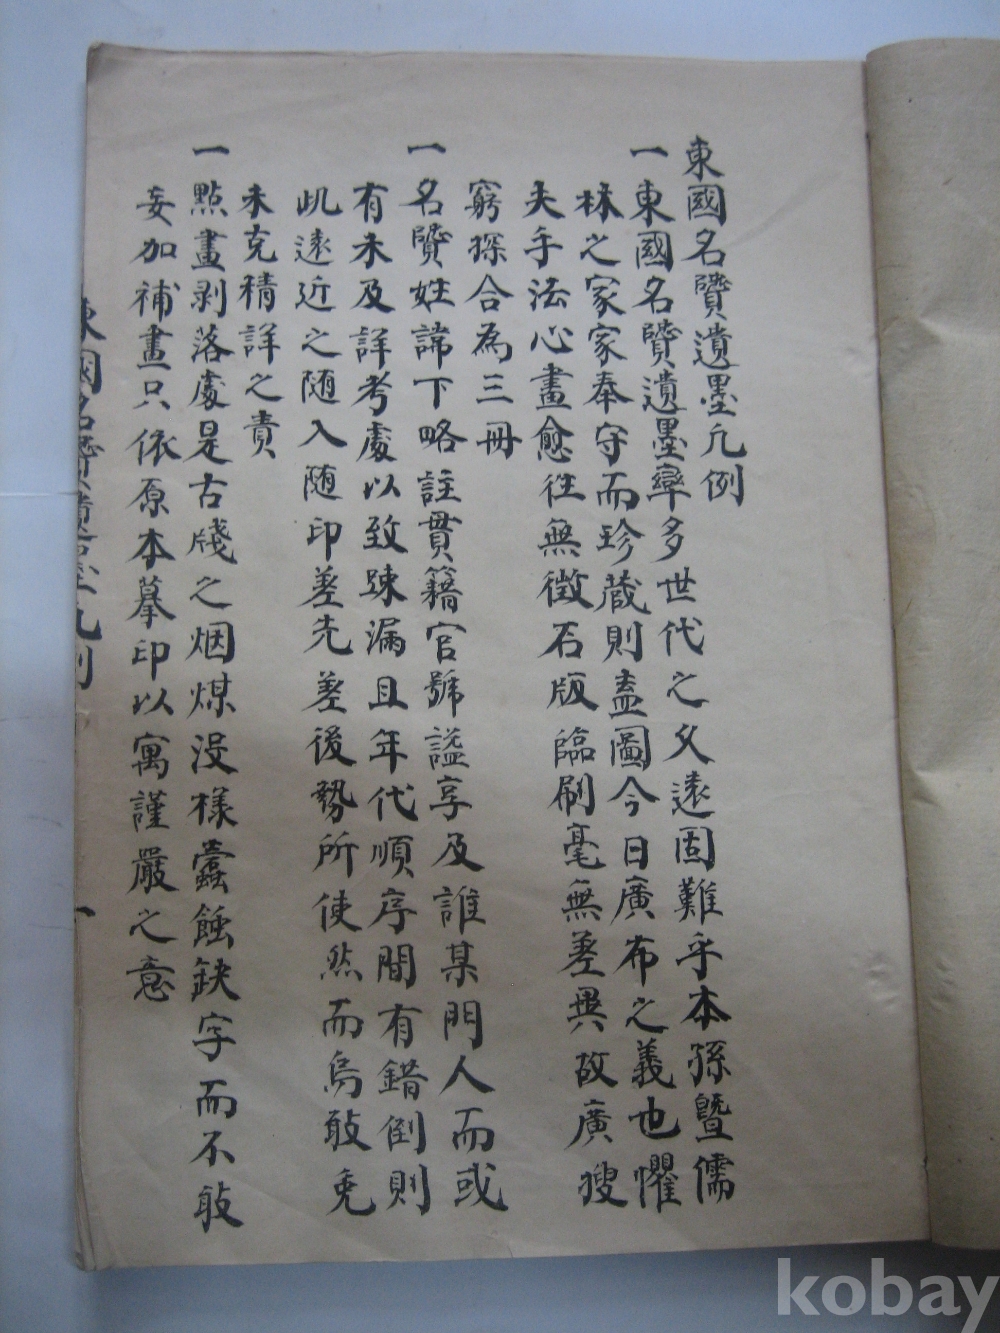 東國名賢遺墨凡例
一東國名賢遺墨率多世代之久遠固難乎本孫曁儒
林之家家奉守而珍蔵則盍圖今日廣布之義也懼
夫手法心畫愈往無徴石版臨刷毫無差異故廣搜
窮探合為三冊
一名賢姓諱下略註貫籍官號諡享及誰某門人而或
有未及詳考處以致踈漏且年代順序間有錯倒則
此遠近之随入随印差先差後勢所使然而烏敢免
未克精詳之責
一點畫剥落處是古牋之烟煤没様蠧蝕缺字而不敢
妄加補畫只依原本摹印以寓謹嚴之意
東國名賢遺墨凡例
一
kobay